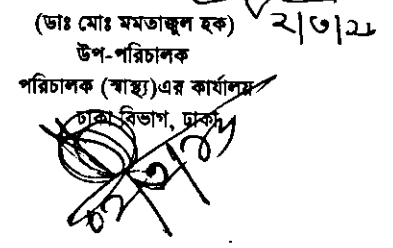 (ডাঃ মোঃ মমতাজুল হক)
উপ-পরিচালক
পরিচালক (স্বাস্থ্য)এর কার্যালয়
ঢাকা বিভাগ, ঢাকা